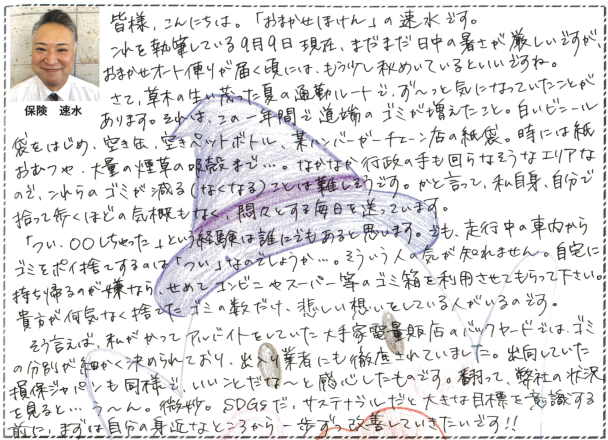 皆様、こんにちは。「おまかせほけん」の速水です。
これを執筆している9月9日現在、まだまだ日中の暑さが厳しいですが、
おまかせオート便りが届く頃には、もう少し秋めいているといいですね。
さて、草木の生い茂った夏の通勤ルートで、ず〜っと気になっていたことが
あります。それは、この一年間で道端のゴミが増えたこと。白いビニール
袋をはじめ、空き缶、空きペットボトル、某ハンバーガーチェーン店の紙袋。時には紙
おむつや、大量の煙草の吸殻まで…。なかなか行政の手も回らなそうなエリアな
ので、これらのゴミが減る(なくなる)ことは難しそうです。かと言って、私自身、自分で
拾って歩くほどの気概もなく、悶々とする毎日を送っています。
「つい、○○しちゃった」という経験は誰にでもあると思います。でも、走行中の車内から
ゴミをポイ捨てするのは「つい」なのでしょうか…。そういう人の気が知れません。自宅に
持ち帰るのが嫌なら、せめてコンビニやスーパー等のゴミ箱を利用させてもらって下さい。
貴方が何気なく捨てたゴミの数だけ、悲しい想いをしている人がいるのです。
そう言えば、私がかつてアルバイトをしていた大手家電量販店のバックヤードでは、ゴミ
の分別が細かく決められており、出入り業者にも徹底されていました。出向していた
損保ジャパンも同様で、いいことだな〜と感心したものです。翻って、弊社の状況
を見ると…う〜ん。微妙。SDGsだ、サステナブルだと大きな目標を意識する
前に、まずは自分の身近なところから一歩ずつ改善していきたいです!!
保険 速水